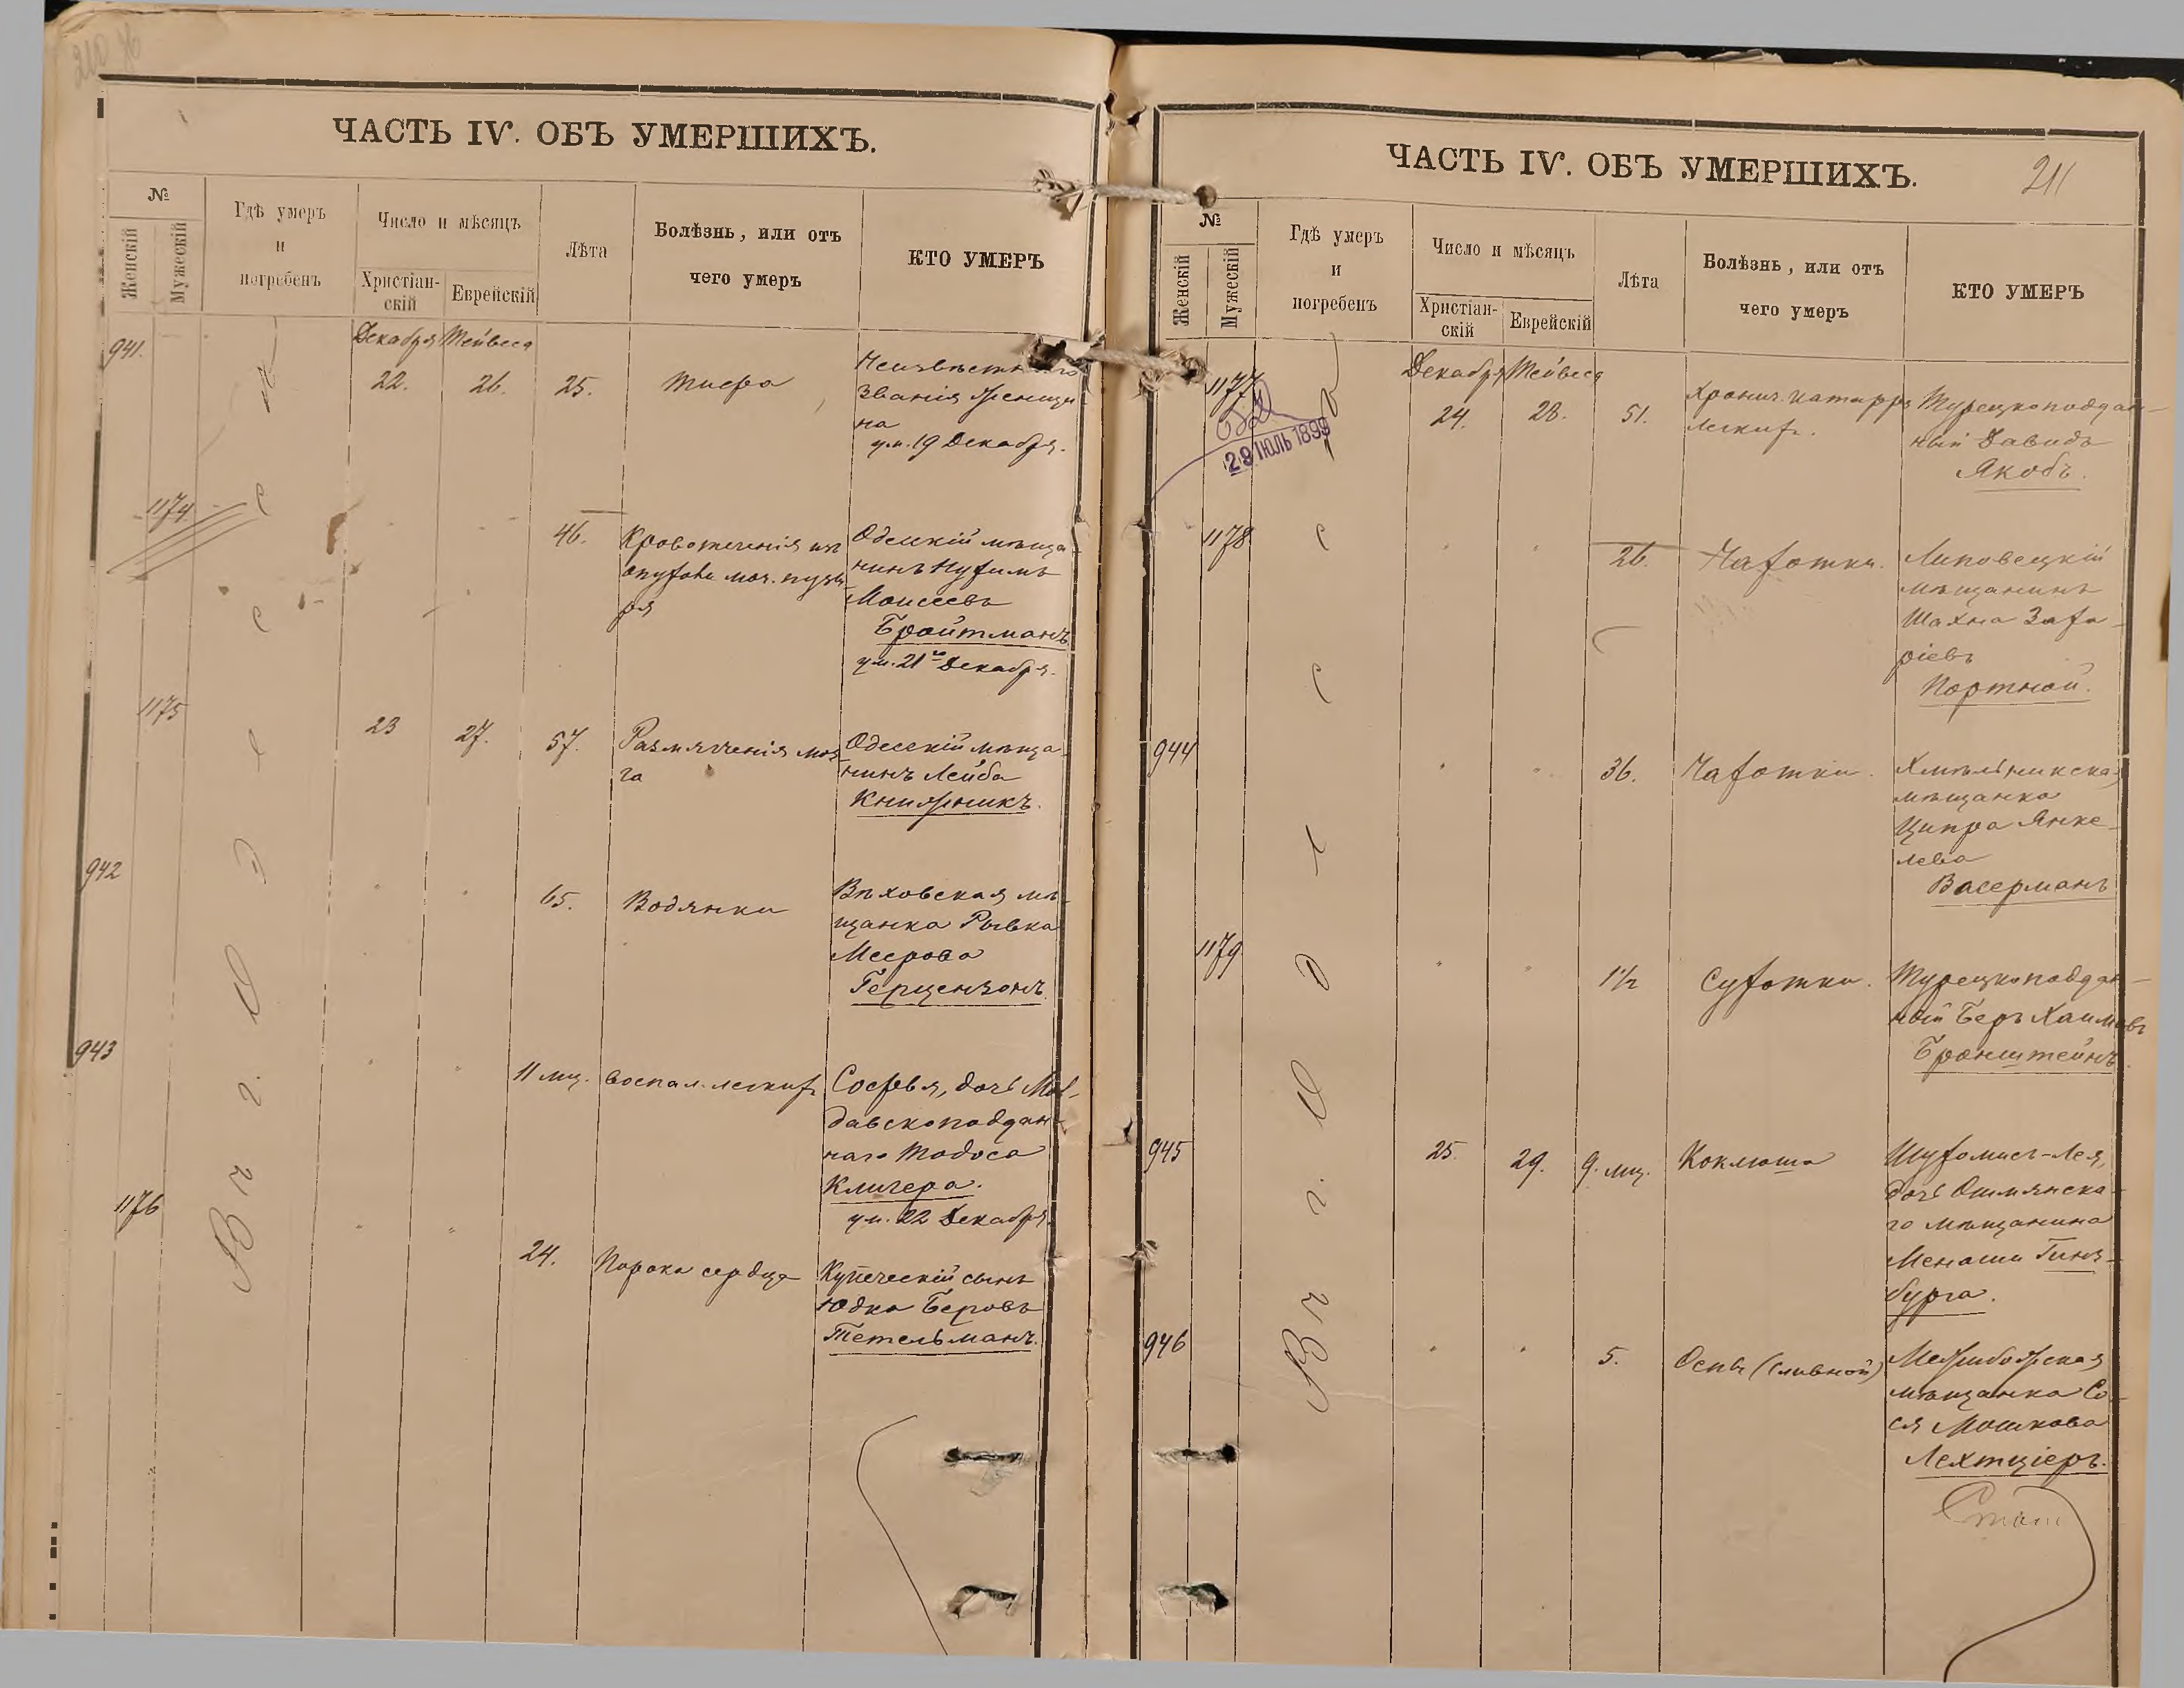 210 об
ЧАСТЬ IV. ОБЪ УМЕРШИХЪ.
№
Женскій
Мужескій
Гдѣ умеръ
и
погребенъ
Число и мѣсяцъ
Христіан-
скій
Еврейскій
Лѣта
Болѣзнь, или отъ
чего умеръ
КТО УМЕРЪ
Въ г. Одесса
Декабря Тейвеса
941. 22. 26. 25. Тифа
Неизвѣстнаго
званія женщи-
на
ум. 19 Декабря.
1174 " " 46. Кровотеченія изъ
опухоли моч. пузы-
ря
Одесскій мѣща-
нинъ Нухимъ
Моисеевъ
Бройтманъ
ум. 21го Декабря.
1175 23 27. 57. Размягченія моз-
га
Одесскій мѣща-
нинъ Лейба
Книжникъ.
942 " " 65. Водянки
Вѣховская мѣ-
щанка Рывка
Меерова
Герцензонъ
943 " " 11 мц. Воспал. легкихъ
Софья, дочь Мол-
давскоподдан-
наго Тодоса
Клигера.
ум. 22 Декабря.
1176 " " 24. Порока сердца
Купеческій сынъ
Юдка Беровъ
Тетельманъ.
ЧАСТЬ IV. ОБЪ УМЕРШИХЪ.
211
№
Женскій
Мужескій
Гдѣ умеръ
и
погребенъ
Число и мѣсяцъ
Христіан-
скій
Еврейскій
Лѣта
Болѣзнь, или отъ
чего умеръ
КТО УМЕРЪ
Въ г. Одесса
Декабря Тейвеса
1177 24. 28. 51. Хронич. катарра
легкихъ.
Турецкоподдан-
ный Давидъ
Якобъ.
29 ІЮЛЬ 1899
1178 " " 26. Чахотки.
Липовецкій
мѣщанинъ
Шахна Заха-
ріевъ
Портной.
944 " " 36. Чахотки.
Хмѣльникская
мѣщанка
Ципра Янке-
лева
Васерманъ
1179 " " 1½ Сухотки.
Турецкоподдан-
ный Беръ Хаимовъ
Бронштейнъ.
945 25. 29. 9. мц. Коклюша
Шуломис-Лея,
дочь Ошмянска-
го мѣщанина
Менаши Гинз-
бурга.
946 " " 5. Оспы (сливной)
Межибожская
мѣщанка Со-
ся Мошкова
Лехтціеръ.